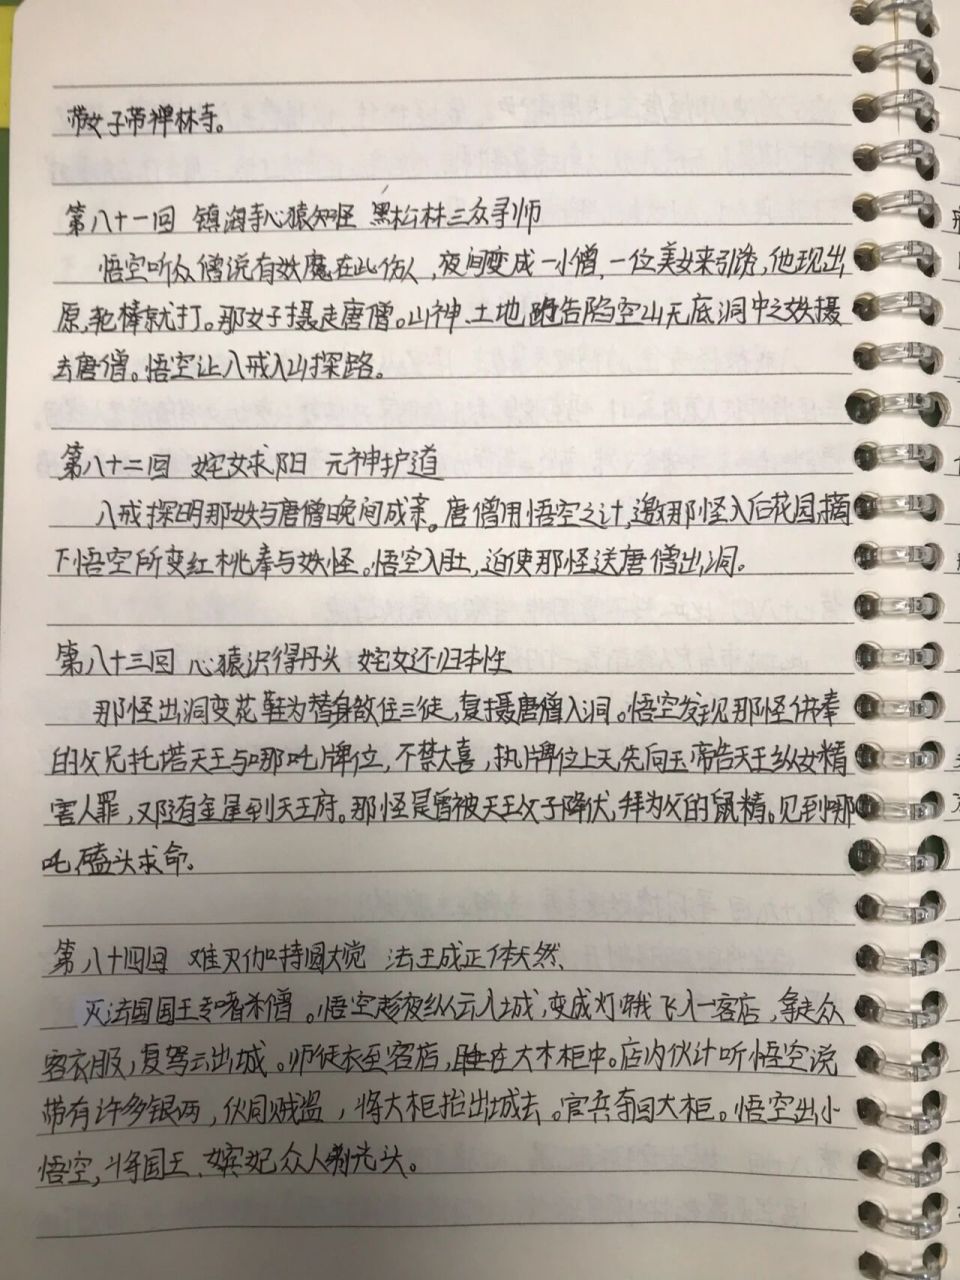 带女子带禅林寺。
第八十一回 镇海寺心猿知怪 黑松林三众寻师
悟空听众僧说有妖魔在此伤人,夜间变成一小僧,一位美女来引诱,他现出
原,抡棒就打。那女子摄走唐僧。山神、土地跑告陷空山无底洞中之妖摄
去唐僧。悟空让八戒入山探路。
第八十二回 姹女求阳 元神护道
八戒探明那妖与唐僧晚间成亲。唐僧用悟空之计,邀那怪入后花园摘
下悟空所变红桃奉与妖怪。悟空入肚,迫使那怪送唐僧出洞。
第八十三回 心猿识得丹头 姹女还归本性
那怪出洞变花鞋为替身敌住三徒,复摄唐僧入洞。悟空发现那怪供奉
的父兄托塔天王与哪吒牌位,不禁大喜,执牌位上天,先向玉帝告天王纵女精
害人罪,又随金星到天王府。那怪是曾被天王父子降伏,拜为父的鼠精。见到哪
吒,磕头求命。
第八十四回 难灭伽持圆大觉 法王成正体天然、
灭法国国王专嗜杀僧。悟空趁夜纵云入城,变成灯蛾飞入一客店,拿走众
客衣服,复驾云出城。师徒衣至客店,睡在大木柜中。店内伙计听悟空说
带有许多银两,伙同贼盗,将大柜抬出城去。官兵夺回大柜。悟空出小
悟空,将国王、嫔妃众人剃光头。